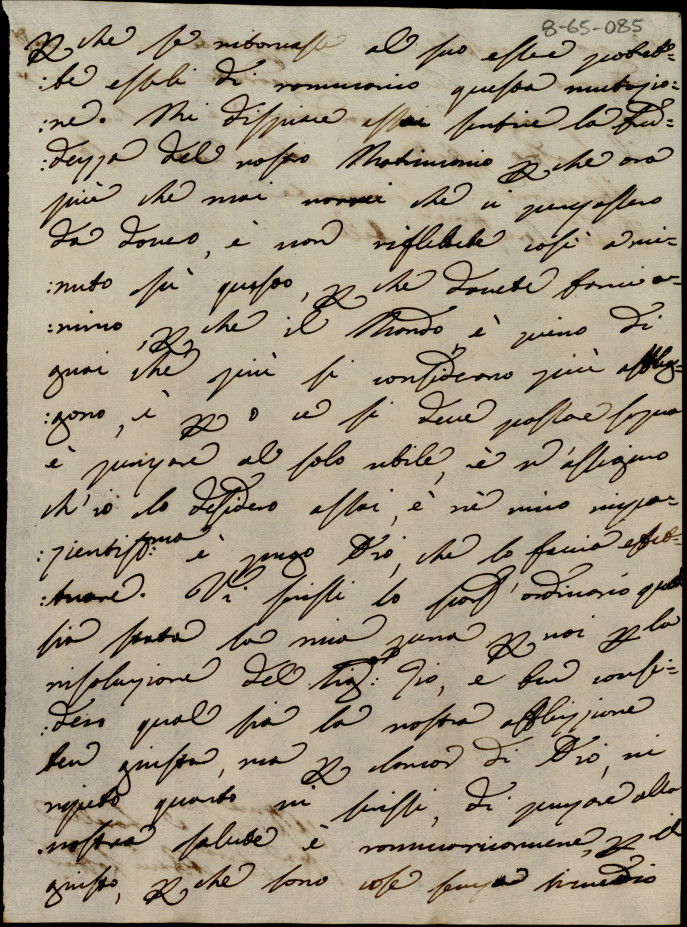 8-65-085
P che se ritornasse al suo esser potreb=
:be esseli di rammarico questa mutazio:
:ne. Mi dispiace assai sentire la fred=
:dezza del vostro Matrimonio P che ora
più che mai vorrei che ci pensassero
da dovero, è non riflettete così a mi=
:nuto sù questo, P che dovete farvi a=
:nimo, P che il Mondo è pieno di
guai che più si considerano più afflig=
:gono, è P o ce si deve passare sopra
è pensare al solo utile, è v'assicuro
ch'io lo desidero assai, è nè vivo impa=
:zientissma è prego Dio, che lo faccia effet=
:tuare. Vi scrissi lo scors' ordinario qual
sia stata la mia pena P voi P la
risoluzione del Sig: Zio, e ben consi=
:dero qual sia la vostra afflizzione
ben giusta, ma P l'amor di Dio, vi
ripeto quanto vi scrissi, di pensare alla
vostra salute è rammaricarvene, P il
giusto, P che sono cose senza rimedio